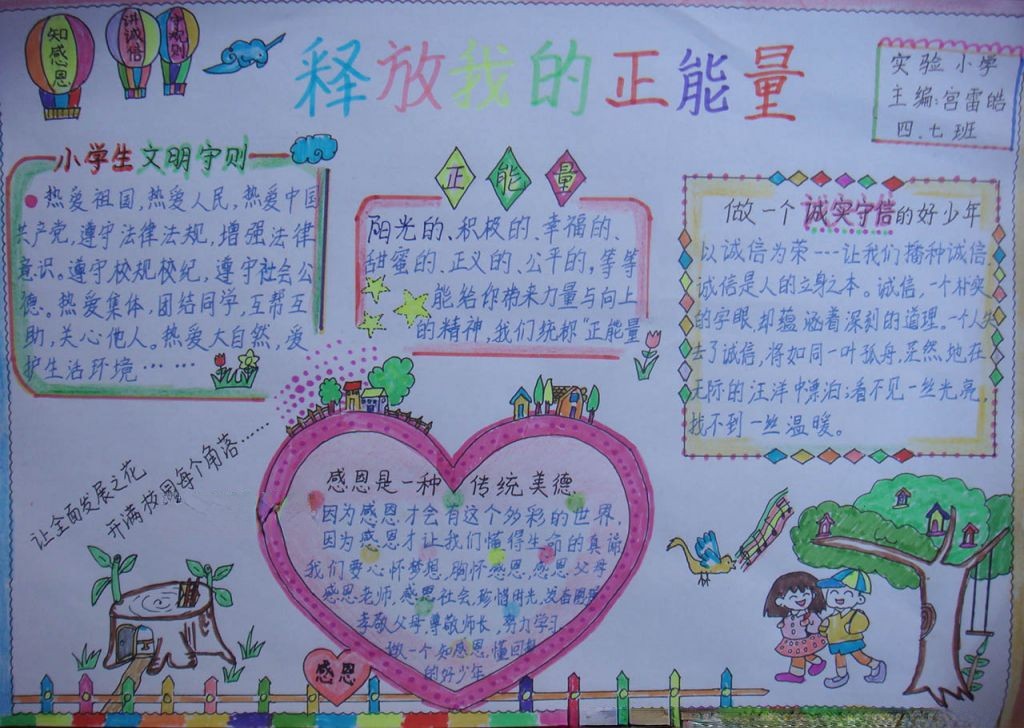 知感恩
讲诚信
守规则
释放我的正能量
实验小学
主编:宫雷皓
四.七班
小学生文明守则
热爱祖国,热爱人民,热爱中国
共产党,遵守法律法规,增强法律
意识。遵守校规校纪,遵守社会公
德。热爱集体,团结同学,互帮互
助,关心他人。热爱大自然,爱
护生活环境……
正能量
阳光的、积极的、幸福的、
甜蜜的、正义的、公平的,等等
能给你将来力量与向上
的精神,我们统称“正能量
做一个诚实守信的好少年
以诚信为荣---让我们播种诚信
诚信是人的立身之本。诚信,一个朴实
的字眼,却蕴涵着深刻的道理。一个人失
去了诚信,将如同一叶孤舟,茫然地在
无际的汪洋中漂泊;看不见一丝光亮,
找不到一丝温暖。
让全面发展之花
开满校园每个角落……
感恩是一种传统美德
因为感恩才会有这个多彩的世界,
因为感恩才让我们懂得生命的真谛
我们要心怀梦想,胸怀感恩,感恩父母
感恩老师,感恩社会,珍惜时光,发奋图强
孝敬父母,尊敬师长,努力学习
做一个知感恩,懂回
的好少年
感恩